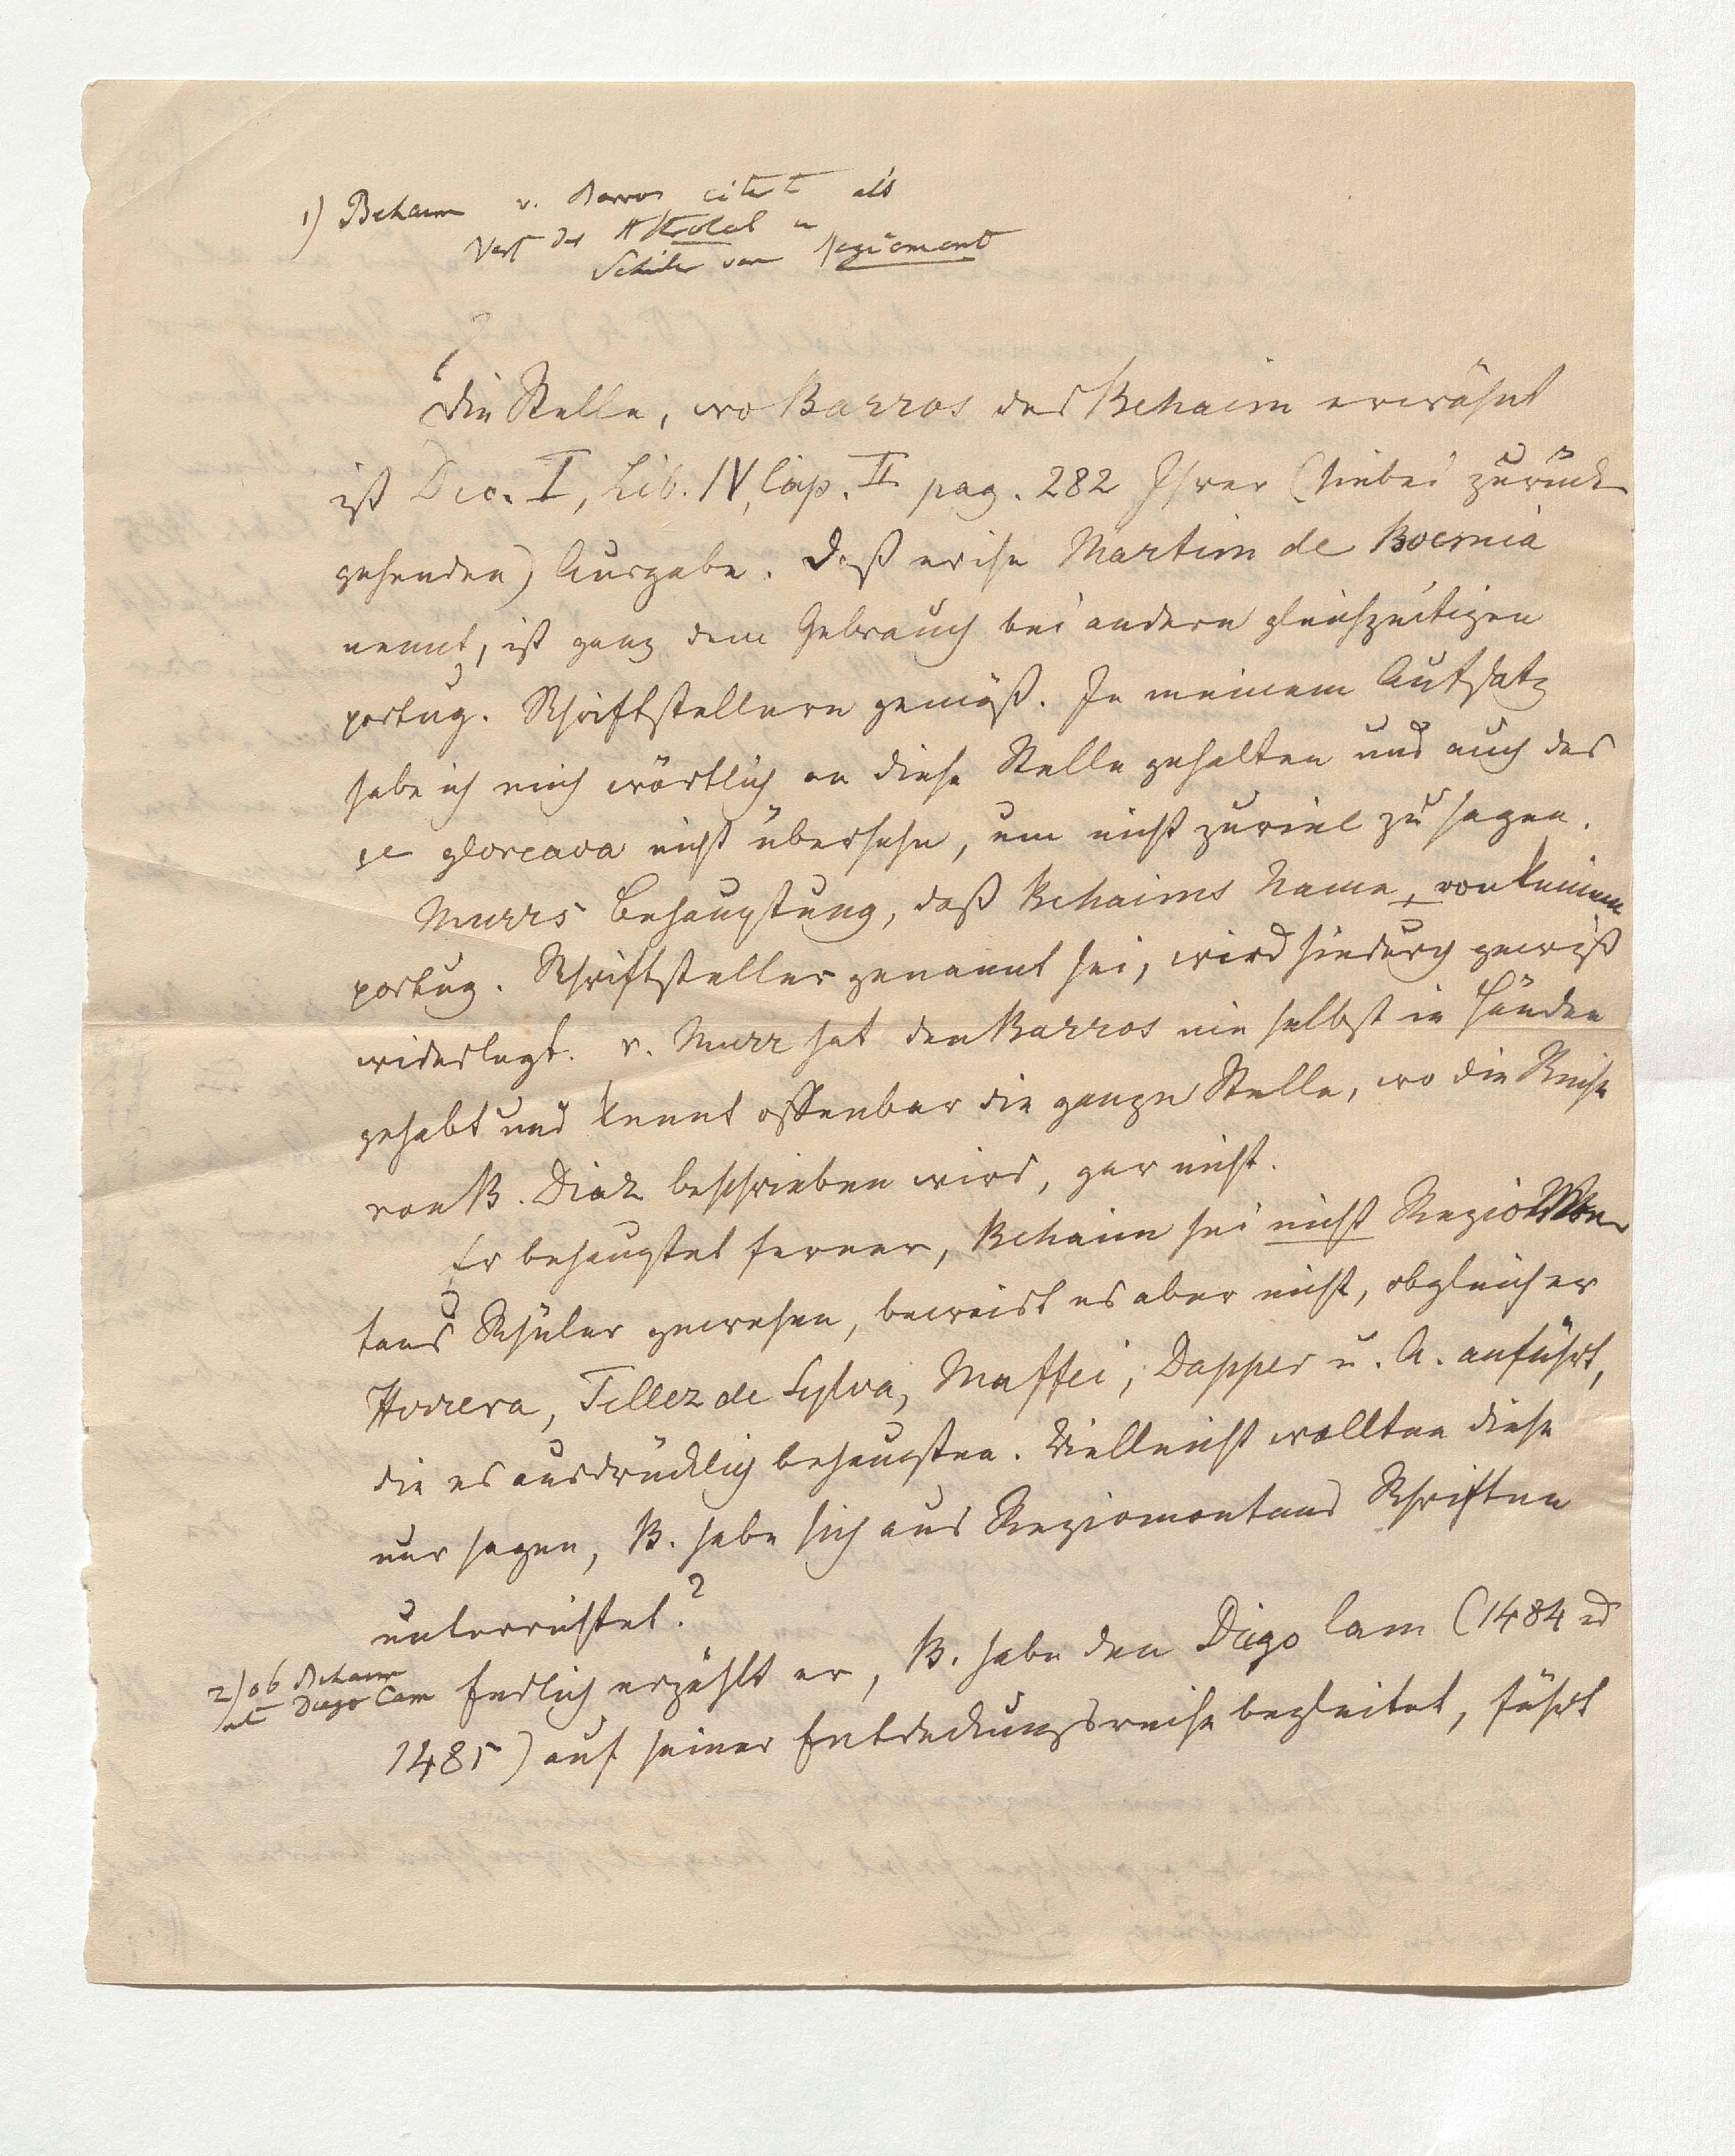 1) Behaim v. Barros citirt als
Verf des Astrolab u
Schüler von Regiomont
Die Stelle, wo Barros des Behaim erwähnt
ist Dec. I, Lib. IV, Cap. II pag. 282 Ihrer (hiebei zurück
gehenden) Ausgabe. Daß er ihn Martim de Boemia
nennt, ist ganz dem Gebrauch bei andern gleichzeitigen
portug. Schriftstellern gemäß. In meinem Aufsatz
habe ich mich wörtlich an diese Stelle gehalten und auch das
se gloreava nicht übersehn, um nicht zuviel zu sagen.
Murrs Behauptung, daß Behaims Name, von keinem
portug. Schriftsteller genannt sei, wird hiedurch gewiß
widerlegt. v. Murr hat den Barros nie selbst in Händen
gehabt und kennt offenbar die ganze Stelle, wo die Reise
von B. Diaz beschrieben wird, gar nicht.
Er behauptet ferner, Behaim sei nicht Regiomon
tans Schüler gewesen, beweist es aber nicht, obgleich er
Herrera, Tellez de Sylva, Maffei, Dapper u. A. anführt,
die es ausdrücklich behaupten. Vielleicht wollten diese
nur sagen, B. habe sich aus Regiomontans Schriften
unterrichtet?
2) ob Behaim
mit Diego Cam
Endlich erzählt er, B. habe den Diego Cam (1484 u
1485) auf seiner Entdeckungsreise begleitet, führt